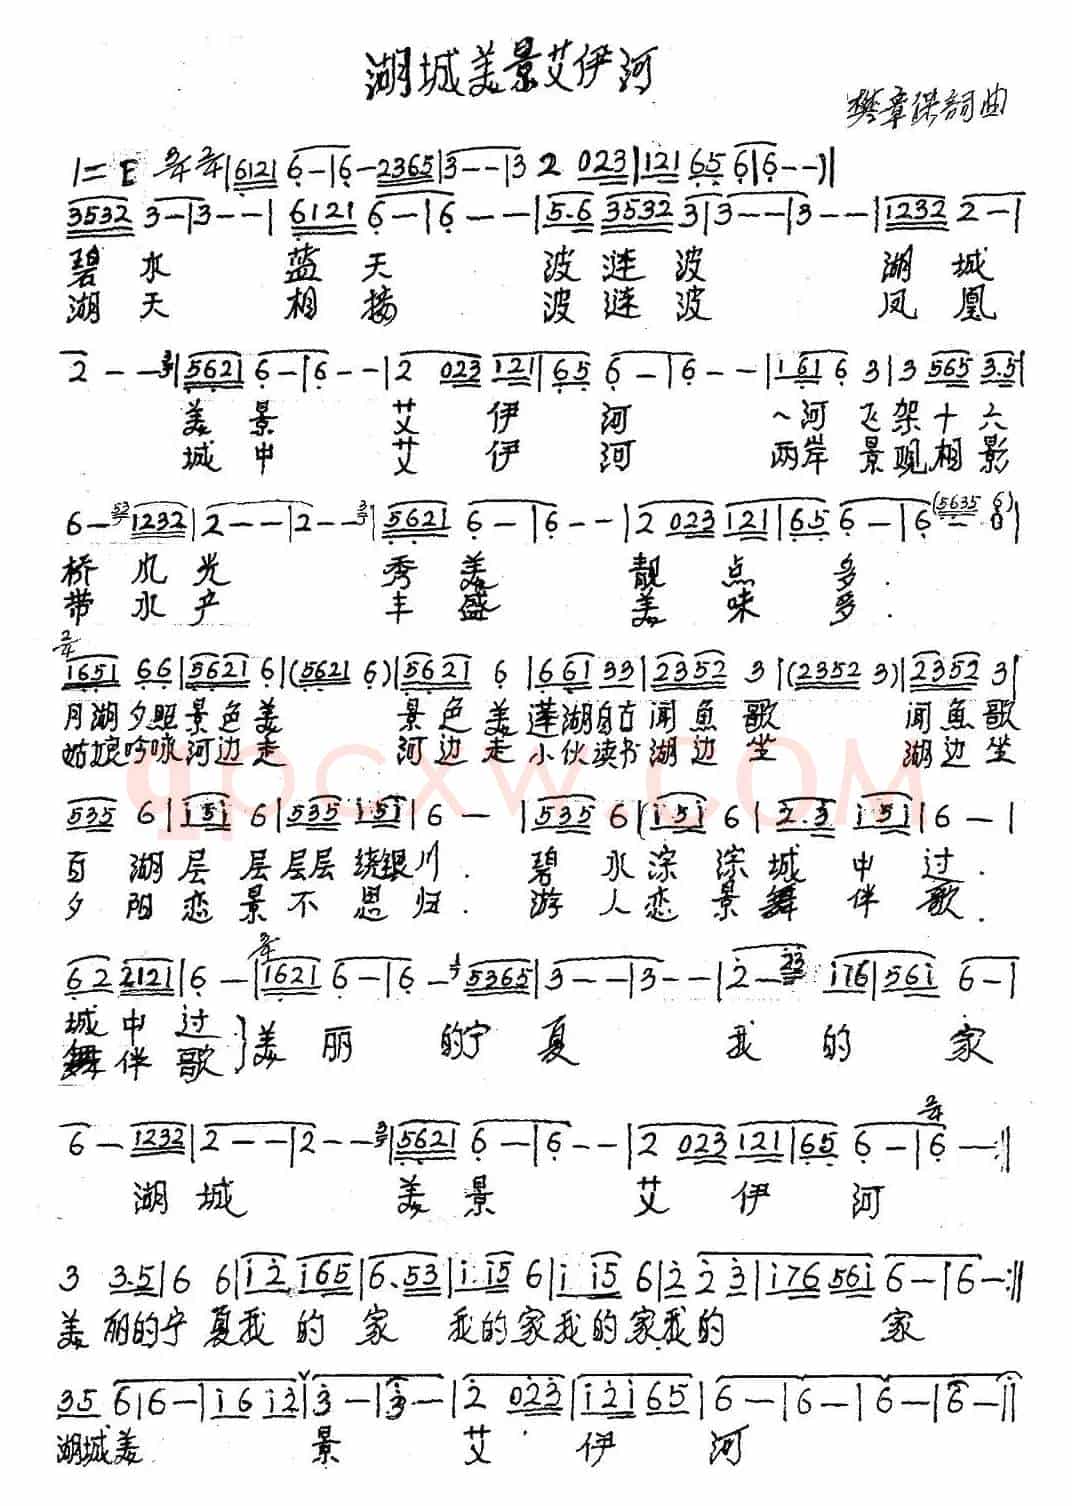 湖城美景艾伊河
樊章保詞曲
1=E 3/4 2/4 | 6121 6-|6-2365|3--|3 2 023|121 65 6|6--)|
3532 3-|3--| 6121 6-|6---|5.6 3532 3|3--|3--|1232 2-|
碧水 蓝天 波涟波 湖城
湖天 相接 波涟波 凤凰
2--- 3/4|5621 6-|6--|2 023 121|65 6-|6--|161 6 3|3 565 3.5|
美景 艾伊河 一河飞架十六
城中 艾伊河 两岸景观相影
6- 53 1232|2--|2-- 3/4|5621 6-|6--|2 023 121|65 6-|6 (5635 6)|
桥风光 秀美 靓点多.
带水产 丰盛 美味多.
2/4
1651 66|5621 6|(5621 6)|5621 6|661 33|2352 3|(2352 3)|2352 3|
月湖夕照景色美 景色美莲湖自古闻鱼歌 闻鱼歌
姑娘吟咏河边走 河边走小伙读书湖边坐 湖边坐
qpcxw.COM
535 6|i5i 6|535 i5i|6-|535 6|i5i 6|2.3 i5i|6-|
百湖层层层层绕银川. 碧水淙淙城中过.
夕阳恋景不思归. 游人恋景舞伴歌.
3/4
62 2121|6-|1621 6-|6- 5365|3--|3--|2- 23 i76|56i 6-|
城中过}美丽的宁夏 我的家
舞伴歌
6- 1232|2--|2-- 3/4|5621 6-|6--|2 023 121|65 6-|6-:||
2/4
湖城 美景 艾伊河
3 3.5|6 6|i2 i65|6.53|i.i5 6|i i5 6|2 2 3|i76 56i|6-|6-:||
美丽的宁夏我的家 我的家我的家我的 家
35 6|6-|i6 i2|3-|3-|2 023|i2i 65|6-|6-|6-|6-||
湖城美 景 艾伊河